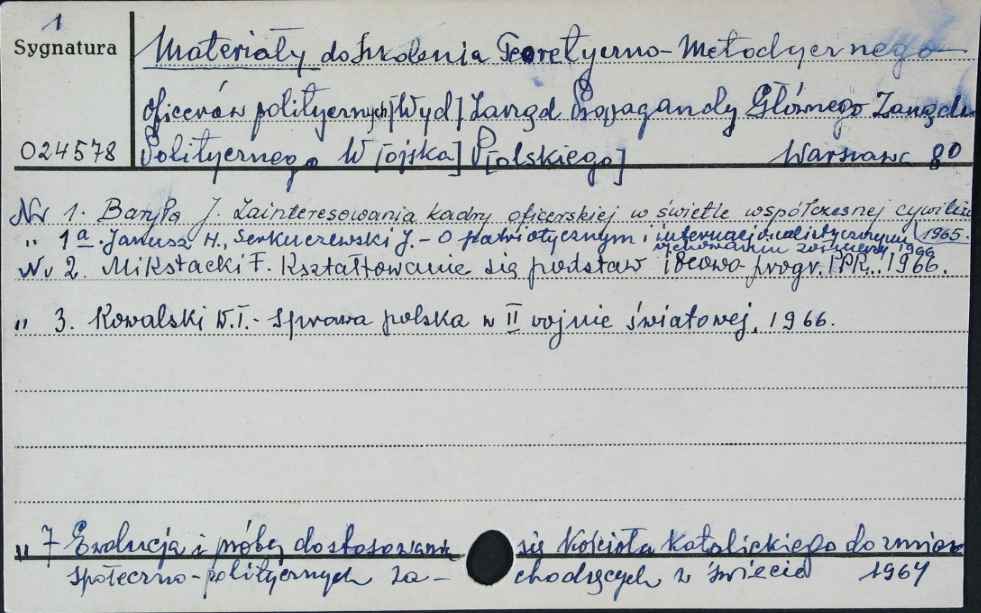 1
Sygnatura
Materiały do Szkolenia Teoretyczno-Metodycznego
oficerów politycznych [Wyd] Zarząd Propagandy Głównego Zarządu
024578 Politycznego W[ojska] P[olskiego] Warszawa 8⁰
Nr 1. Baryła J. Zainteresowania kadry oficerskiej w świetle współczesnej cywiliz
" 1ª. Janusz H., Serkuczewski J. - O patriotycznym i internacjonalistycznym 1965.
wychowaniu żołnierzy 1966
Nr 2. Mikstacki F. Kształtowanie się podstaw ideowo-progr. PPR. 1966.
" 3. Kowalski W.T. - Sprawa polska w II wojnie światowej. 1966.
" 7 Ewolucja i próby dostosowania się Kościoła Katolickiego do zmian
społeczno-politycznych za- chodzących w świecie 1967